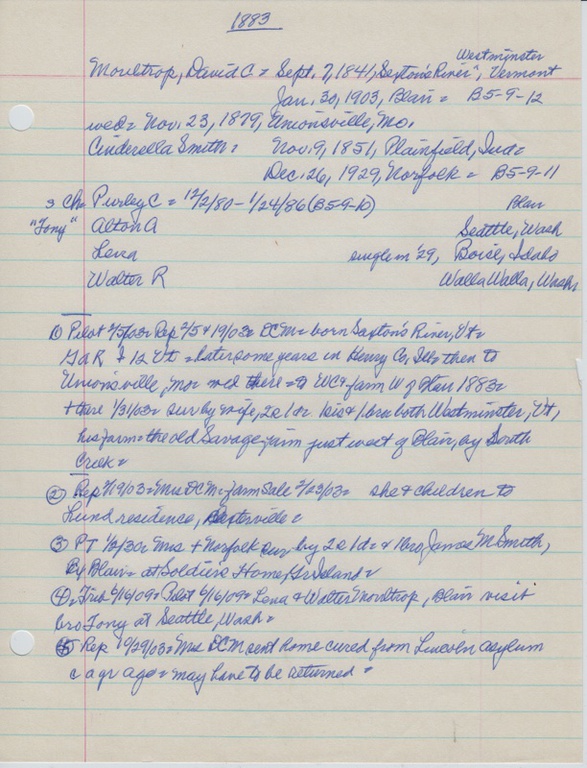 1883
Westminster
Moultrop, David C = Sept. 7, 1841, Saxton's River", Vermont
Jan. 30, 1903, Blair = B5-9-12
wed = Nov. 23, 1879, Unionsville, Mo.
Cinderella Smith = Nov. 9, 1851, Plainfield, Ind =
Dec. 26, 1929, Norfolk = B5-9-11
3 Ch. Purley C = 12/2/80 - 1/24/86 (B5-9-10) Blair
"Tony" Alton A Seattle, Wash
Lena single in '29, Boise, Idaho
Walter R Walla Walla, Wash
① Pilot 2/5/03 Rep 2/5 & 19/03 = DCM = born Saxton's River, Vt =
GAR + 12 Vt = later some years in Henry Co, Ills then to
Unionsville, Mo = wed there = to WC = farm W of Blair 1883 =
+ there 1/31/03 = sur by wife, 2s 1d = 1sis & 1bro both Westminster, Vt,
his farm = the old Savage farm just west of Blair, by South
Creek =
② Rep 2/19/03 = Mrs DCM = farm sale 2/23/03 = she & children to
Lund residence, =
③ PT 1/2/30 = Mrs + Norfolk sur by 2s 1d = & 1bro James M Smith,
Blair = at Soldiers Home, Gr Island =
④ = Trib 6/16/09 = Pilot 6/16/09 = Lena & Walter Moultrop, Blair visit
bro Tony at Seattle, Wash =
⑤ Rep 10/29/03 = Mrs DCM sent home cured from Lincoln asylum
c a yr ago = may have to be returned =